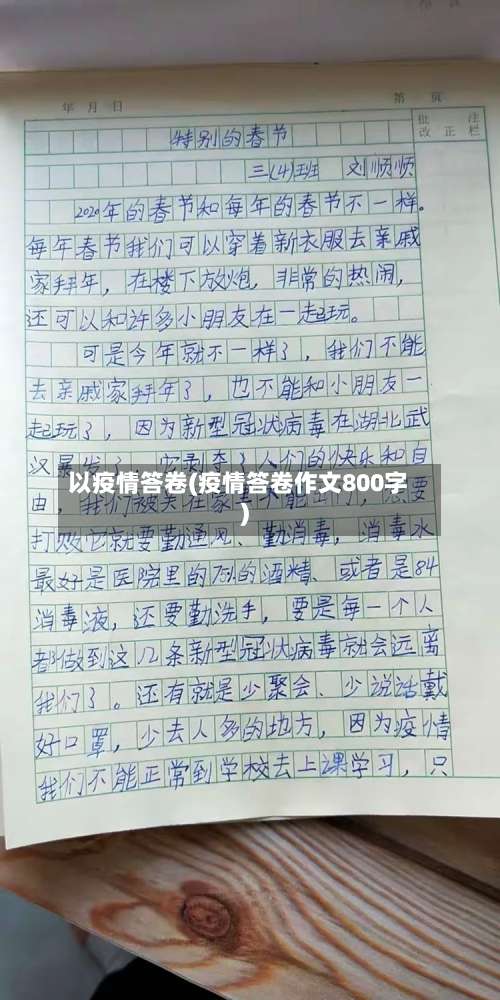 年 月 日
第 页
批 注
改 正 栏
特别的春节
三(4)班 刘顺顺
2020年的春节和每年的春节不一样。
每年春节我们可以穿着新衣服去亲戚
家拜年,在楼下放炮,非常的热闹,
还可以和许多小朋友在一起玩。
可是今年就不一样了,我们不能
去亲戚家拜年了,也不能和小朋友一
起玩了,因为新型冠状病毒在湖北武
汉暴发了,它剥夺了人们的快乐和自
由,我们被关在家
要
以疫情答卷(疫情答卷作文800字
)
打败它就要勤通风、勤消毒,消毒水
最好是医院里的75%的酒精、或者是84
消毒液,还要勤洗手,要是每一个人
都做到这几条新型冠状病毒就会远离
我们了。还有就是少聚会、少说话戴
好口罩,少去人多的地方,因为疫情
我们不能正常到学校去上课学习,只